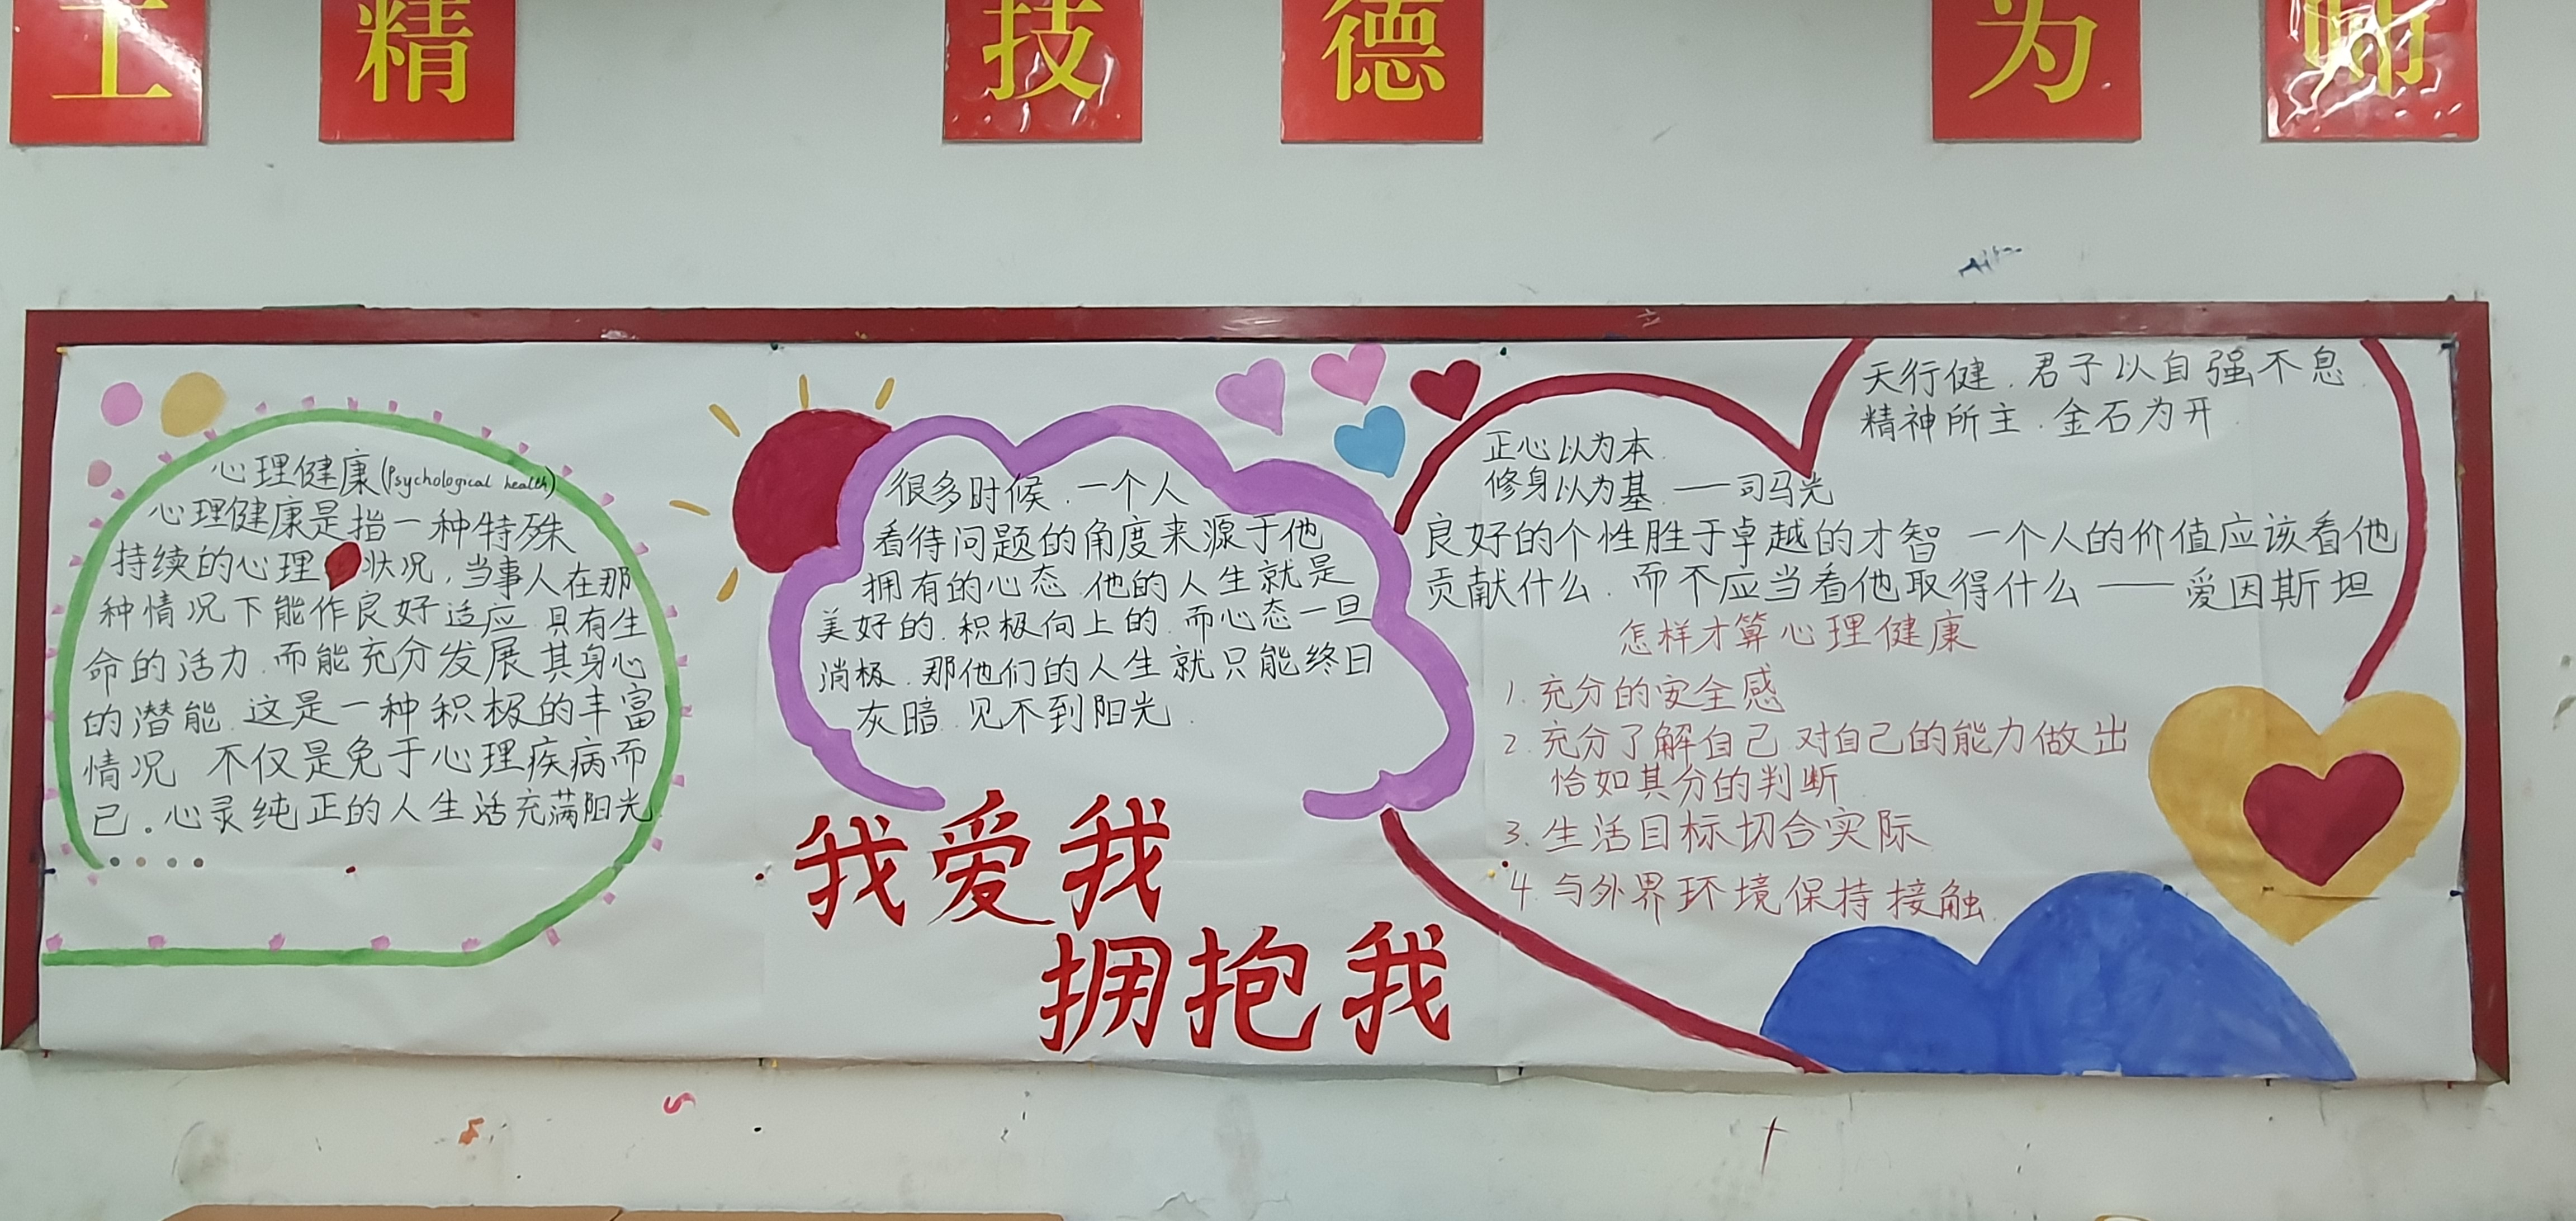 工 精 技 德 为 师
心理健康(Psychological health)
心理健康是指一种特殊
持续的心理状况,当事人在那
种情况下能作良好适应.具有生
命的活力.而能充分发展其身心
的潜能.这是一种积极的丰富
情况 不仅是免于心理疾病而
已。心灵纯正的人生活充满阳光
....
很多时候.一个人
看待问题的角度来源于他
拥有的心态.他的人生就是
美好的.积极向上的.而心态一旦
消极.那他们的人生就只能终日
灰暗.见不到阳光.
我爱我
拥抱我
天行健.君子以自强不息.
精神所主.金石为开.
正心以为本.
修身以为基.——司马光
良好的个性胜于卓越的才智 一个人的价值应该看他
贡献什么.而不应当看他取得什么——爱因斯坦
怎样才算心理健康
1.充分的安全感
2.充分了解自己.对自己的能力做出
恰如其分的判断
3.生活目标切合实际
4.与外界环境保持接触.